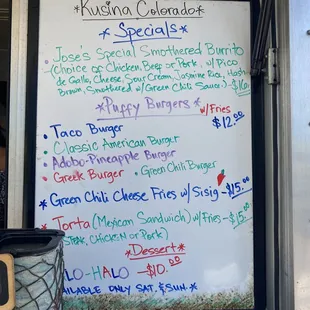 *Kusina Colorado*
* Specials *
• Jose's Special Smothered Burrito
(Choice of Chicken, Beef or Pork, w/ Pico
de Gallo, Cheese, Sour Cream, Jasmine Rice, Hash
Brown, Smothered w/ Green Chili Sauce) -$16.
*Puffy Burgers* w/Fries
• Taco Burger $12.00
• Classic American Burger
• Adobo-Pineapple Burger
• Greek Burger • Green Chili Burger
* Green Chili Cheese Fries w/ Sisig -$15.00
* Torta (Mexican Sandwich) w/ Fries -$15.00
STEAK, CHICKEN or PORK)
*Dessert*
LO-HALO -$10.00
AILABLE ONLY SAT. & SUN. *